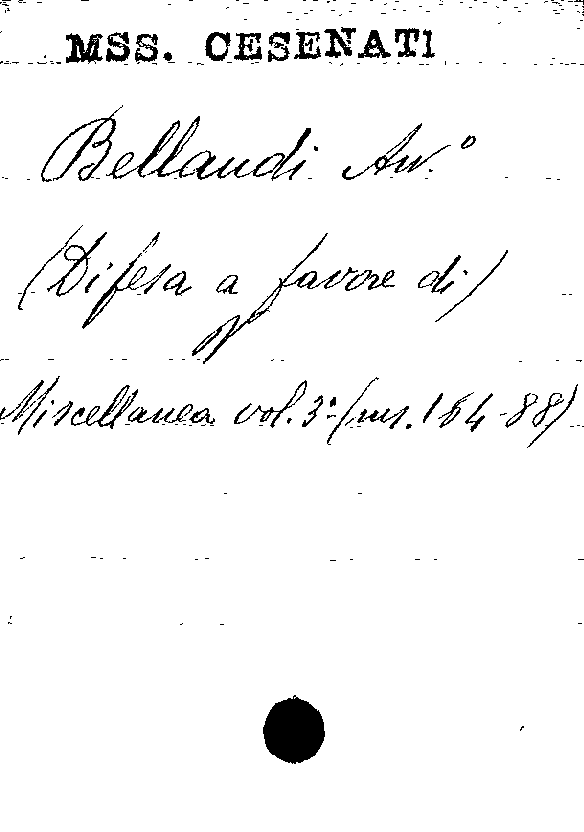 MSS. CESENATI
Bellandi Avv.º
(Difesa a favore di)
Miscellanea vol. 3º (ms. 164-88)